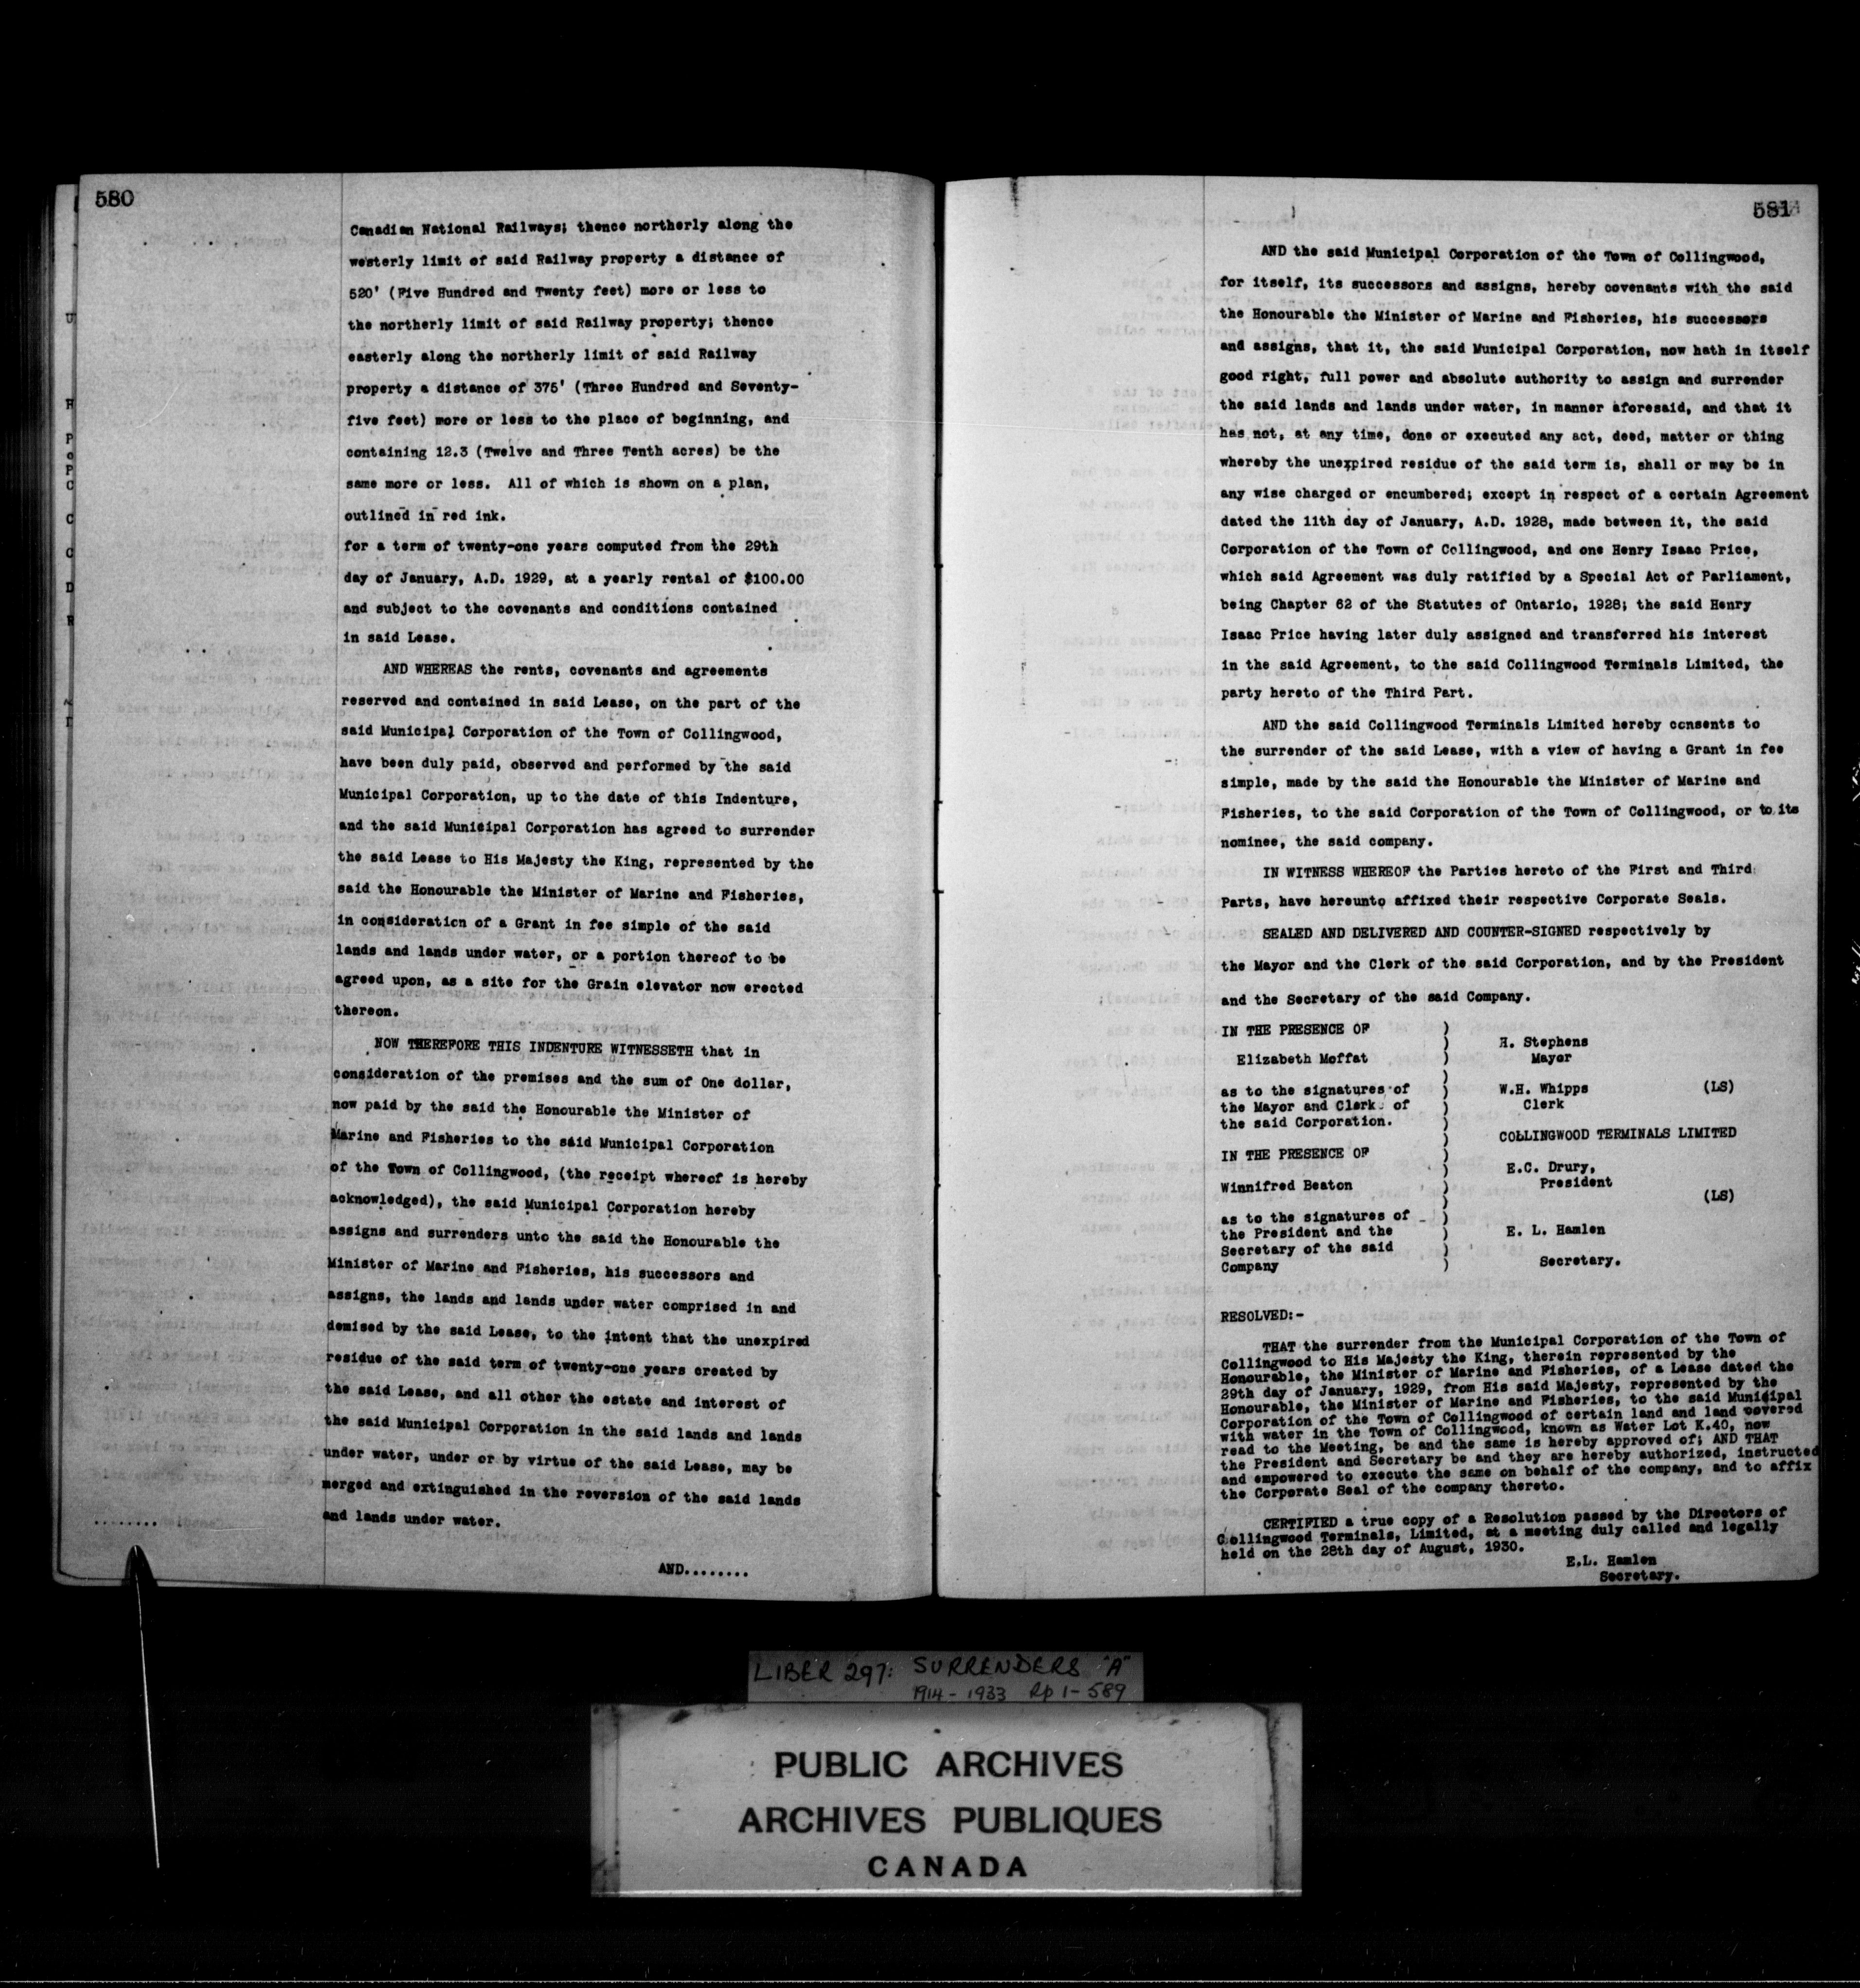 580
Canadian National Railways; thence northerly along the
westerly limit of said Railway property a distance of
520' (Five Hundred and Twenty feet) more or less to
the northerly limit of said Railway property; thence
easterly along the northerly limit of said Railway
property a distance of 375' (Three Hundred and Seventy-
five feet) more or less to the place of beginning, and
containing 12.3 (Twelve and Three Tenth acres) be the
same more or less. All of which is shown on a plan,
outlined in red ink.
for a term of twenty-one years computed from the 29th
day of January, A.D. 1929, at a yearly rental of $100.00
and subject to the covenants and conditions contained
in said Lease.
AND WHEREAS the rents, covenants and agreements
reserved and contained in said Lease, on the part of the
said Municipal Corporation of the Town of Collingwood,
have been duly paid, observed and performed by the said
Municipal Corporation, up to the date of this Indenture,
and the said Municipal Corporation has agreed to surrender
the said Lease to His Majesty the King, represented by the
said the Honourable the Minister of Marine and Fisheries,
in consideration of a Grant in fee simple of the said
lands and lands under water, or a portion thereof to be
agreed upon, as a site for the Grain elevator now erected
thereon.
NOW THEREFORE THIS INDENTURE WITNESSETH that in
consideration of the premises and the sum of One dollar,
now paid by the said the Honourable the Minister of
Marine and Fisheries to the said Municipal Corporation
of the Town of Collingwood, (the receipt whereof is hereby
acknowledged), the said Municipal Corporation hereby
assigns and surrenders unto the said the Honourable the
Minister of Marine and Fisheries, his successors and
assigns, the lands and lands under water comprised in and
demised by the said Lease, to the intent that the unexpired
residue of the said term of twenty-one years created by
the said Lease, and all other the estate and interest of
the said Municipal Corporation in the said lands and lands
under water, under or by virtue of the said Lease, may be
merged and extinguished in the reversion of the said lands
and lands under water.
AND........
581
AND the said Municipal Corporation of the Town of Collingwood,
for itself, its successors and assigns, hereby covenants with the said
the Honourable the Minister of Marine and Fisheries, his successors
and assigns, that it, the said Municipal Corporation, now hath in itself
good right, full power and absolute authority to assign and surrender
the said lands and lands under water, in manner aforesaid, and that it
has not, at any time, done or executed any act, deed, matter or thing
whereby the unexpired residue of the said term is, shall or may be in
any wise charged or encumbered; except in respect of a certain Agreement
dated the 11th day of January, A.D. 1928, made between it, the said
Corporation of the Town of Collingwood, and one Henry Isaac Price,
which said Agreement was duly ratified by a Special Act of Parliament,
being Chapter 62 of the Statutes of Ontario, 1928; the said Henry
Isaac Price having later duly assigned and transferred his interest
in the said Agreement, to the said Collingwood Terminals Limited, the
party hereto of the Third Part.
AND the said Collingwood Terminals Limited hereby consents to
the surrender of the said Lease, with a view of having a Grant in fee
simple, made by the said the Honourable the Minister of Marine and
Fisheries, to the said Corporation of the Town of Collingwood, or to its
nominee, the said company.
IN WITNESS WHEREOF the Parties hereto of the First and Third
Parts, have hereunto affixed their respective Corporate Seals.
SEALED AND DELIVERED AND COUNTER-SIGNED respectively by
the Mayor and the Clerk of the said Corporation, and by the President
and the Secretary of the said Company.
IN THE PRESENCE OF )
) H. Stephens
Elizabeth Moffat ) Mayor
)
as to the signatures of ) W.H. Whipps (LS)
the Mayor and Clerk of ) Clerk
the said Corporation. )
) COLLINGWOOD TERMINALS LIMITED
IN THE PRESENCE OF )
) E.C. Drury,
Winnifred Beaton ) President
) (LS)
as to the signatures of )
the President and the ) E. L. Hamlen
Secretary of the said )
Company ) Secretary.
RESOLVED:-
THAT the surrender from the Municipal Corporation of the Town of
Collingwood to His Majesty the King, therein represented by the
Honourable, the Minister of Marine and Fisheries, of a Lease dated the
29th day of January, 1929, from His said Majesty, represented by the
Honourable, the Minister of Marine and Fisheries, to the said Municipal
Corporation of the Town of Collingwood of certain land and land covered
with water in the Town of Collingwood, known as Water Lot K.40, now
read to the Meeting, be and the same is hereby approved of; AND THAT
the President and Secretary be and they are hereby authorized, instructed
and empowered to execute the same on behalf of the company, and to affix
the Corporate Seal of the company thereto.
CERTIFIED a true copy of a Resolution passed by the Directors of
Collingwood Terminals, Limited, at a meeting duly called and legally
held on the 28th day of August, 1930.
E.L. Hamlen
Secretary.
LIBER 297: SURRENDERS "A"
1914-1933 Rp 1-589
PUBLIC ARCHIVES
ARCHIVES PUBLIQUES
CANADA